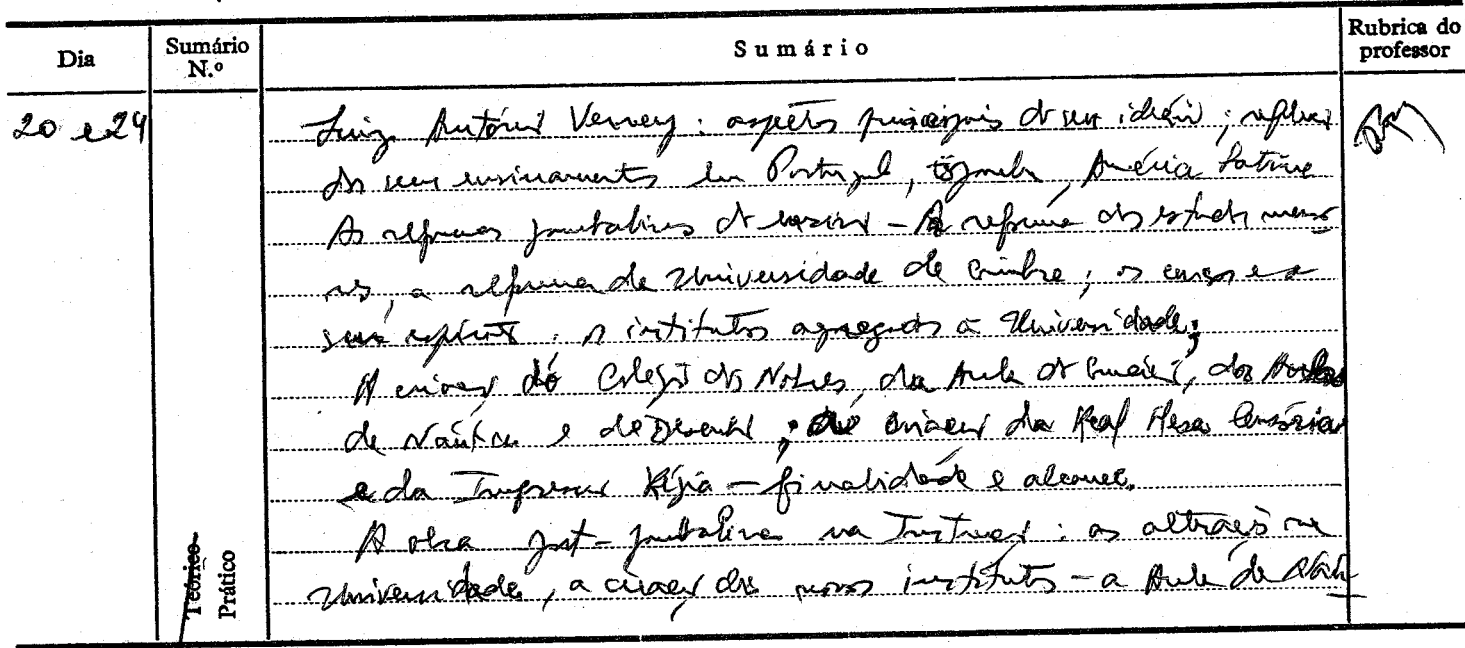 Dia
Sumário N.º
Sumário
Rubrica do professor
20 e 24
Luiz António Verney : aspectos principais do seu ideário ; reflexos
dos seus ensinamentos em Portugal, Espanha, América Latina
As reformas pombalinas do ensino - A reforma dos estudos meno
res, a reforma da Universidade de Coimbra ; os cursos e o
seu espírito : os institutos agregados à Universidade;
A criação do Colégio dos Nobres, da Aula do Comércio, das Aulas
de Náutica e de Desenho ; criação da Real Mesa Censória
e da Impressão Régia - finalidade e alcance.
A obra post-pombalina na Instrução : as alterações na
Universidade, a criação dos novos institutos - a Aula de Náu
Teórico-
Prático